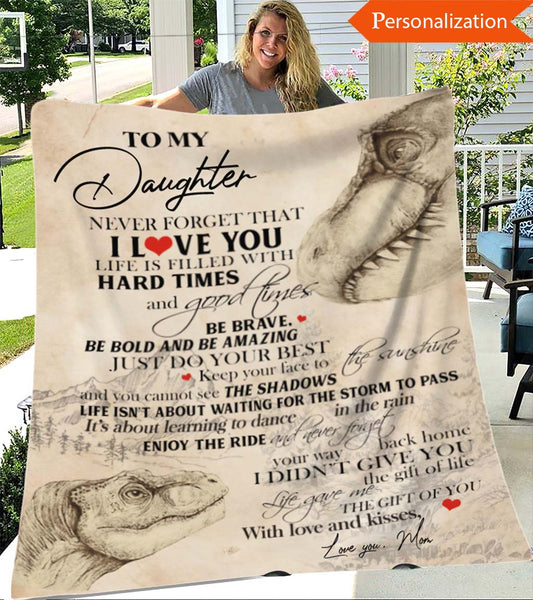 Personalization
TO MY
Daughter
NEVER FORGET THAT
I LOVE YOU
LIFE IS FILLED WITH
HARD TIMES
and good times
BE BRAVE.
BE BOLD AND BE AMAZING
JUST DO YOUR BEST
Keep your face to the sunshine
and you cannot see THE SHADOWS
LIFE ISN'T ABOUT WAITING FOR THE STORM TO PASS
It's about learning to dance in the rain
ENJOY THE RIDE and never forget
your way back home
I DIDN'T GIVE YOU
the gift of life
Life gave me
THE GIFT OF YOU
With love and kisses,
Love you... Mom